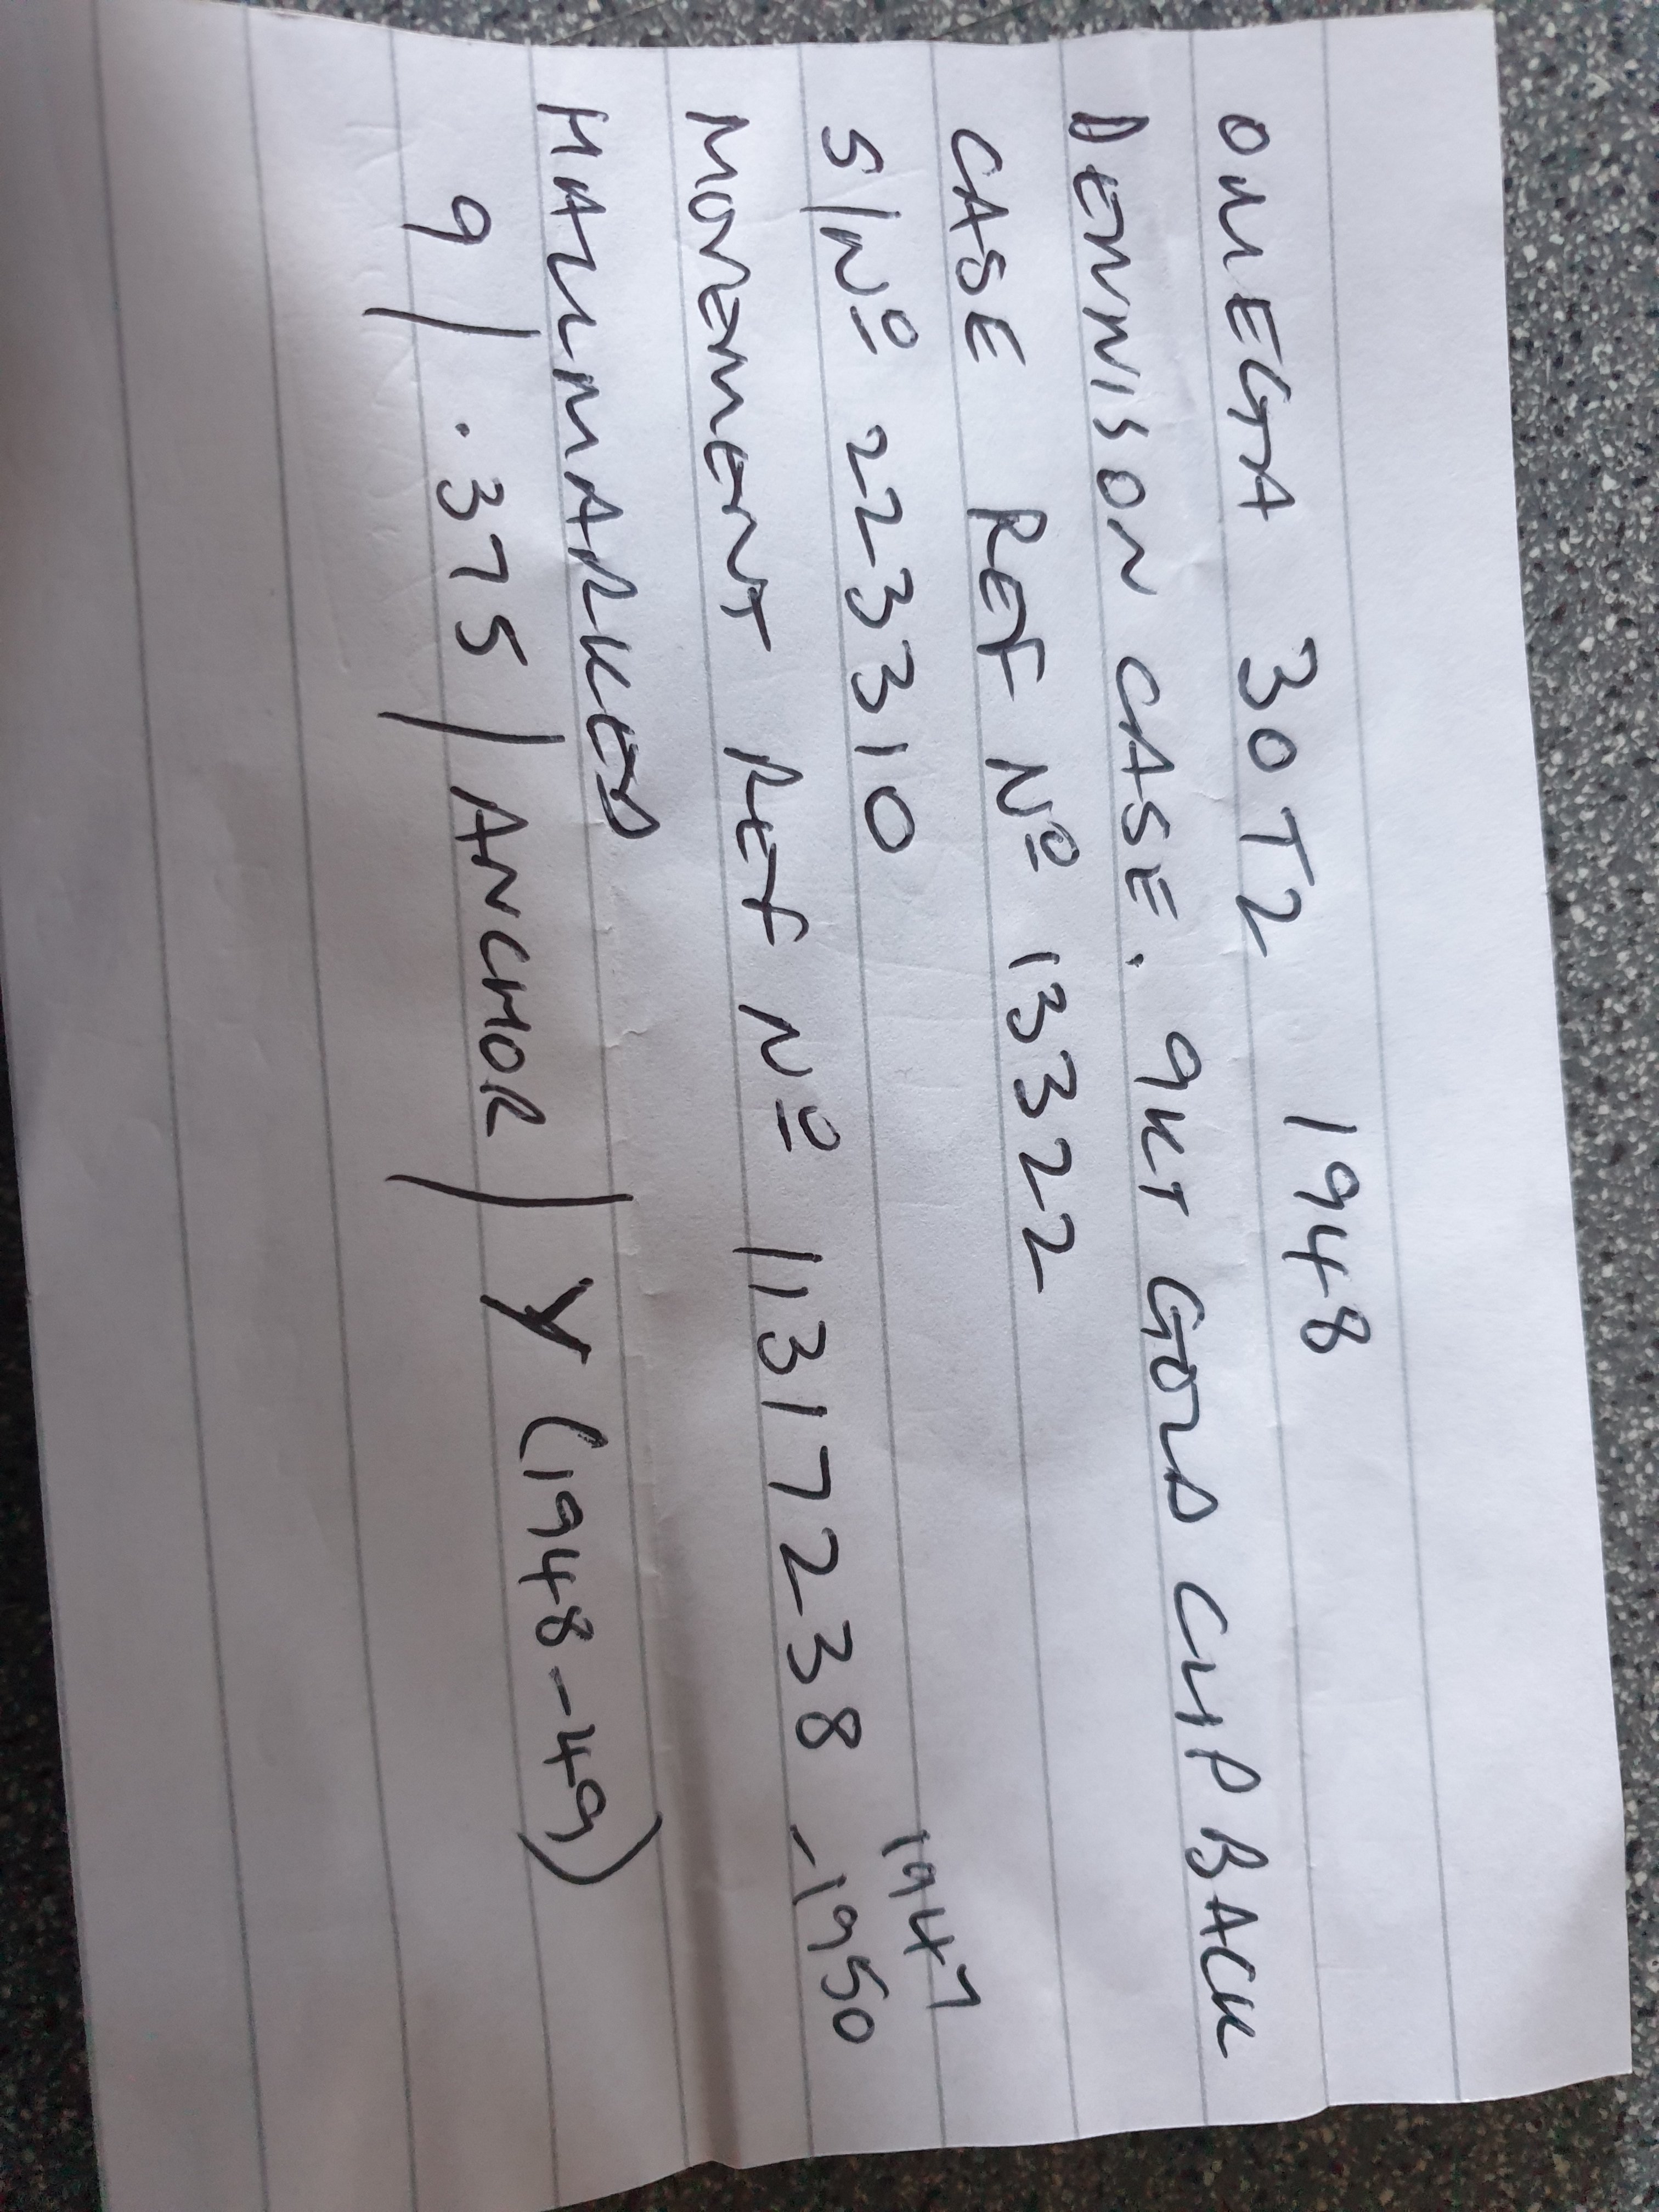 1948
OMEGA 30T2
DENNISON CASE. 9KT GOLD CLIP BACK
CASE REF Nº 13322
S/Nº 223310
1947
MOVEMENT REF Nº 11317238 -1950
HALLMARKED
9/.375/ANCHOR/Y (1948-49)